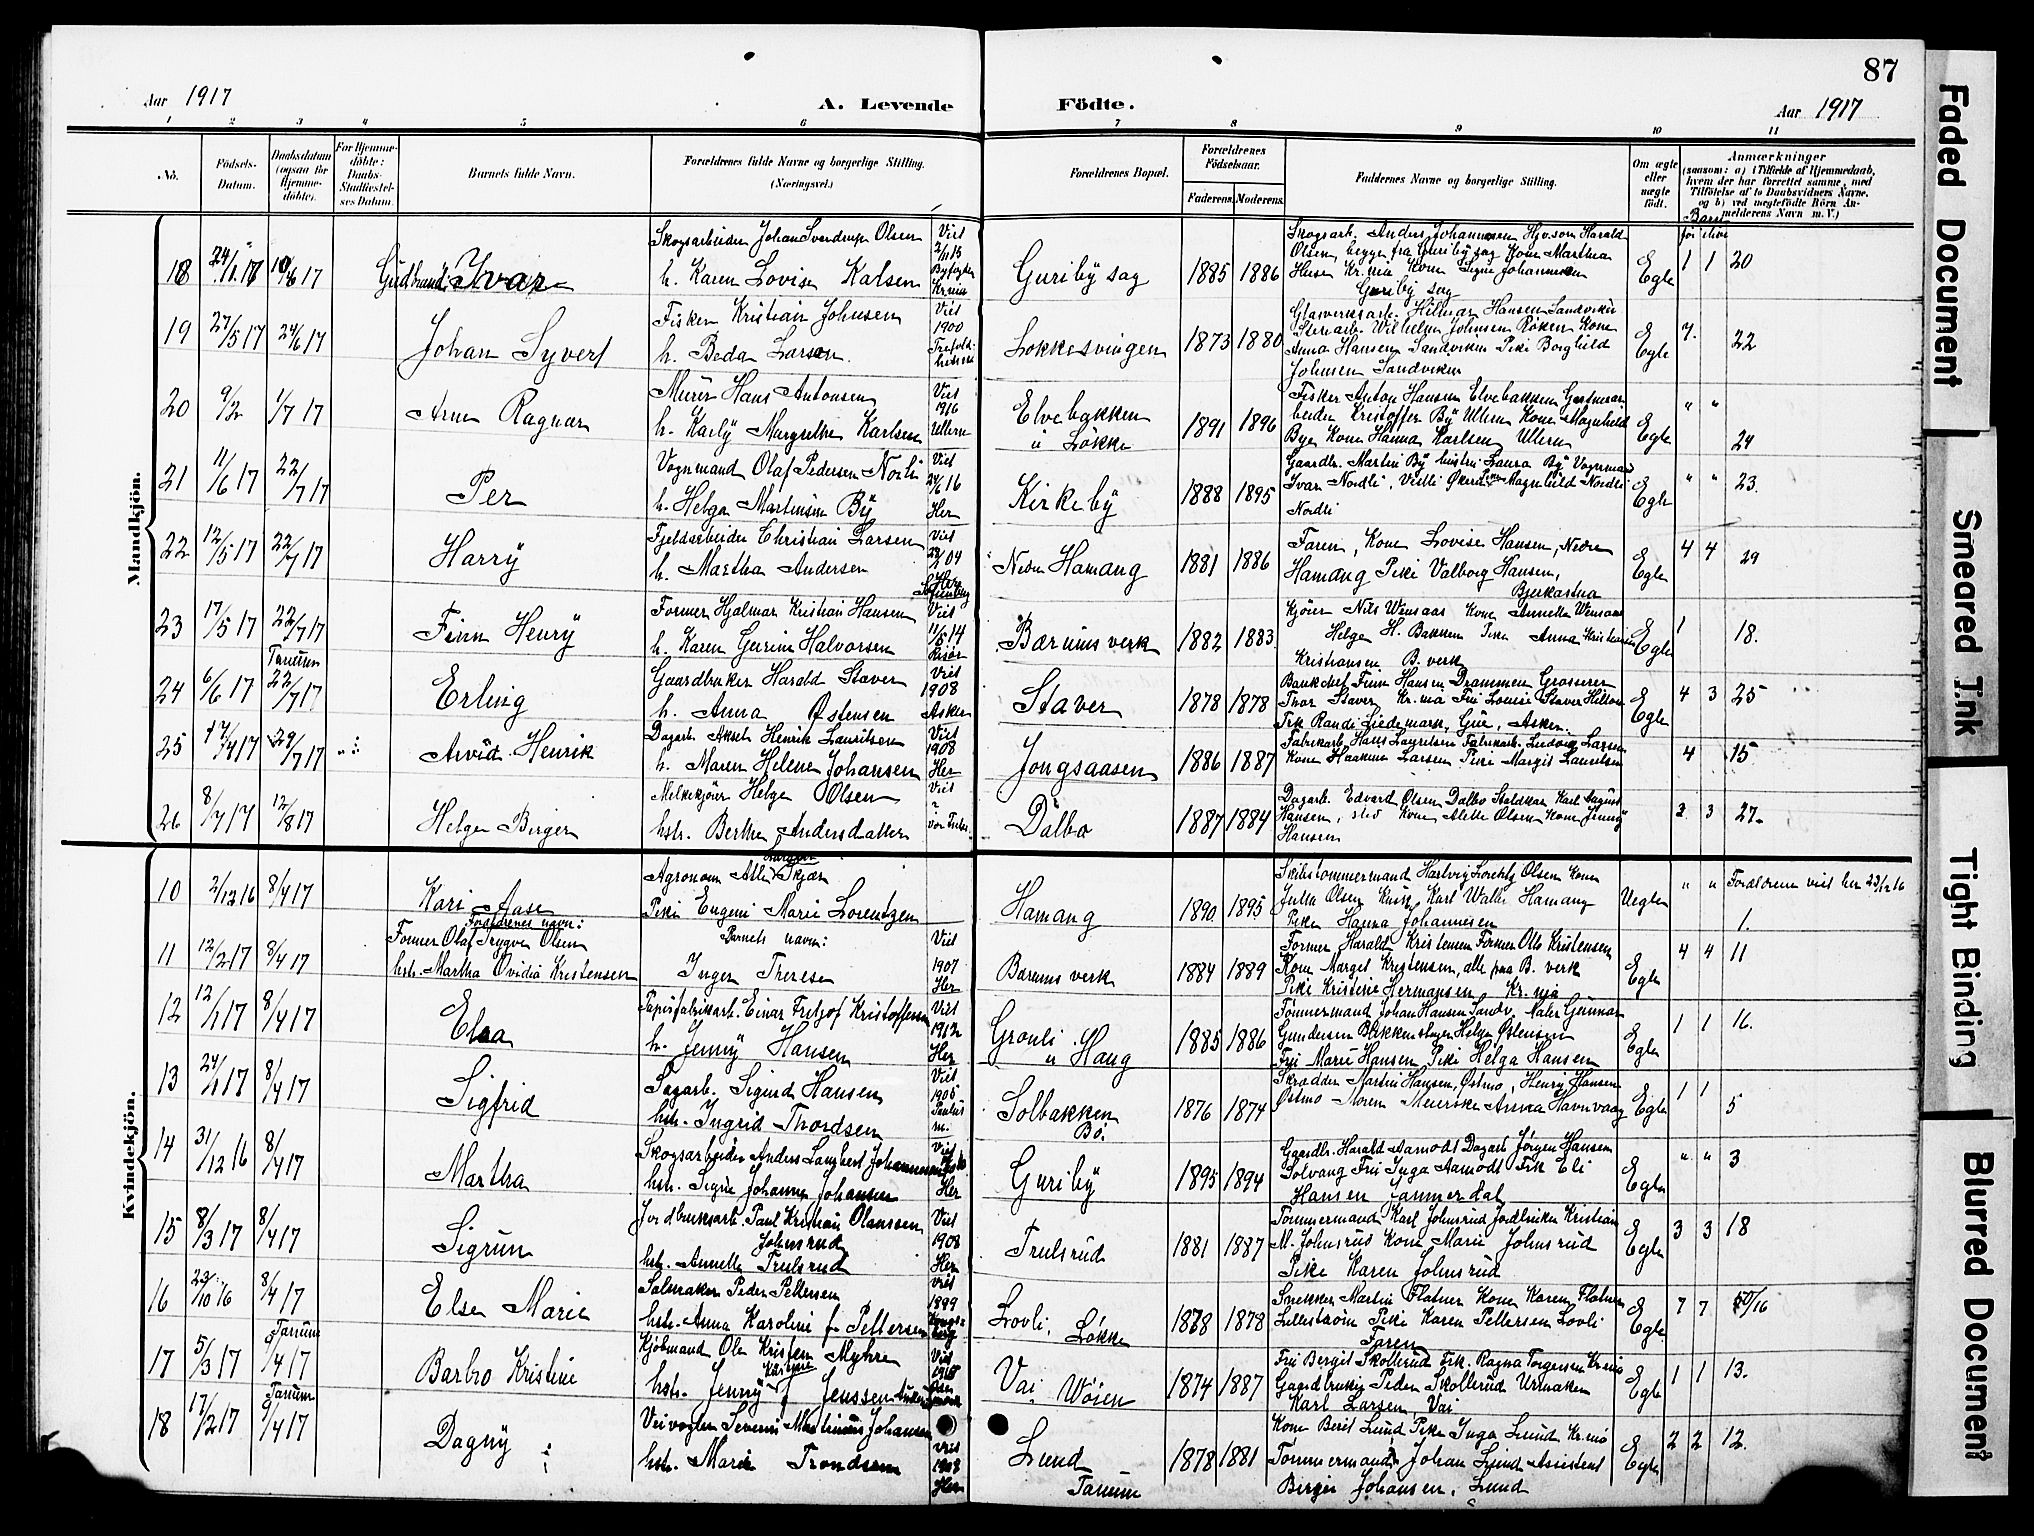 87
Aar 1917
A. Levende
Födte.
Aar 1917
1 2 3 4 5 6 7 8 9 10 11
No.
Födsels-
Datum.
Daabsdatum
(ogsaa for
Hjemme-
döbte).
For Hjemme-
döbte:
Daabs-
Stadfæstel-
ses Datum.
Barnets fulde Navn.
Forældrenes fulde Navne og borgerlige Stilling.
(Næringsvei.)
Forældrenes Bopæl.
Forældrenes
Födselsaar.
Faderens. Moderens.
Faddernes Navne og borgerlige Stilling.
Om ægte
eller
uægte
født.
Anmærkninger
(saasom: a) i Tilfælde af Hjemmedaab,
hvem der har forrettet samme, med
Tilföielse af to Daabsvidners Navne,
og b) ved uægtefödte Börn An-
melderens Navn m. V.)
Mandkjön.
18
Gudbrand Ivar
Skogsarbeider Johan Sverdrup Olsen
h. Karen Lovise Karlsen
Guriby sag
1885 1886
Egte
1 1 20
19 27/5 17 24/6 17
Johan Syvert
Fisker Kristian Johnsen
h. Beda Larsen
Viet
1900
Løkkesvingen
1873 1880
Anna Hansen Sandviken Pike Borghild
Johnsen Sandviken
Egte
7. 22
20 9/2 1/7 17
Arne Ragnar
Murer Hans Antonsen
h. Karly Margrethe Karlsen
Viet
1916
Ullern
Elvebakken
i Løkke
1891 1896
Fisker Anton Hansen Elvebakken
Bye Kone Hanna Karlsen Ullern
Egte
" " 24
21 11/6 17 22/7 17
Per
Vognmand Olaf Pedersen Nordli
h. Helga Martinsen By
Viet
24/6 16
Her
Kirkeby
1888 1895
Nordli
Egte
" " 23.
22 12/5 17 22/7 17
Harry
Fjeldarbeider Christian Larsen
h. Martha Andersen
Viet
Nedre Hamang
1881 1886
Faren, Kone Lovise Hansen, Nedre
Hamang Pike Valborg Hansen,
Bjerkastua
Egte
4 4 29
23 17/5 17 22/7 17
Finn Henry
Former Hjalmar Kristian Hansen
h. Karen Gurine Halvorsen
Viet
11/5 14
Risør
Bærums verk
1882 1883
Kjører Nils Wensaas Kone Annette Wensaas
Helge H. Bakken Pike Anna Kristiansen
Kristiansen B. verk
Egte
1 18.
24 6/6 17 Tanum 22/7 17
Erling
Gaardbruker Harald Staver
h. Anna Østensen
Viet
1908
Asker
Staver
1878 1878
Bankchef Finn Hansen Drammen Grosserer
Thor Staver Kr.nia Fru Louise Staver
Frk Randi Liedemark, Gue, Asker.
Egte
4 3 25
25 17/4 17 29/7 17
Arvid Henrik
Dagarb. Aksel Henrik Lauritsen
h. Maren Helene Johansen
Viet
1908
Her
Jongsaasen
1886 1887
Fabrikarb. Hans Lauritsen Fabrikarb. Ludvig Larsen
Kone Haakine Larsen Pike Margit Lauritsen
4 15
26 8/7 17 12/8 17
Helge Birger
Melkekjører Helge Olsen
hstr. Berthe Andersdatter
Viet
Dalbo
1887 1884
Dagarb. Edvard Olsen Dalbo Staldkar Karl August
Hansen, sted Kone Alette Olsen Kone Jenny
Hansen
3 3 27.
Kvindekjön.
10 2/12 16 8/4 17
Kari Aase
Agronom Atle Skjær
Pike Eugeni Marie Lorentzen
Hamang
1890 1895
Skibstømmermand Hartvig Lorentz Olsen Kone
Jutta Olsen Kusk Karl Wale Hamang
Pike Hanna Johannesen
Uegte
" " Forældrene viet her 23/12 16
1.
11 12/2 17 8/4 17
Forældrenes navn:
Former Olaf Trygve Olsen
hstr. Martha Ovidia Kristensen
Barnets navn:
Inger Therese
Viet
1907
Her
Bærums verk
1884 1889
Former Harald Kristensen Former Ole Kristensen
Kone Margit Kristensen, alle fra B. verk
Pike Kristine Hermansen Kr.nia
Egte
4 4 11
12 12/1 17 8/4 17
Elsa
Papirfabrikarb. Einar Fritjof Kristoffersen
h. Jenny Hansen
Viet
1912
Her
Grouli
u Haug
1885 1886
Tømmermand Johan Hansen Sandv. Maler Gunnar
Gundersen Blikkenslager Helge Østensen
Fru Marie Hansen Pike Helga Hansen
Egte
1 1 16.
13 24/1 17 8/4 17
Sigfrid
Sagarb. Sigurd Hansen
hstr. Ingrid Thordsen
Viet
1905
Paulus
m.
Solbakken
Bø.
1876 1874
Skrædder Martin Hansen, Østmo, Henry Hansen
Østmo Moren Meierske Anna Havnvaag
Egte
1 1 5
14 31/12 16 8/4 17
Martha
Skogsarbeider Anders Lambert Johannesen
hstr. Signe Johanne Johansen
Viet
Her
Guriby
1895 1894
Gaardbr. Harald Aamodt Dagarb Jørgen Hansen
Solvang Fru Inga Aamodt Frk Eli
Hansen
Egte
" " 3
15 8/3 17 8/4 17
Sigrun
Jordbruksarb. Paul Kristian Olaussen
Johnsrud
hstr. Annette Trulsrud
Viet
1908
Her
Trulsrud
1881 1887
Tømmermand Karl Johnsrud Jordbruker Kristian
M. Johnsrud Kone Marie Johnsrud
Pike Karen Johnsrud
Egte
3 3 18
16 29/10 16 8/4 17
Else Marie
Salmaker Peder Pettersen
hstr. Anna Karoline f Pettersen
Viet
1899
Kongs-
berg
Lovli, Løkke
1878 1878
Snekker Martin Flatner Kone Karen Flatner
Lillestrøm Pike Karen Pettersen Lovli
Faren
Egte
7 7
17 5/3 17 Tanum 9/4 17
Barbro Kristine
Kjøbmand Ole Kristen Myhre
hstr. Jenny f Jenssen
Viet
Vai Wøien
1874 1887
Fru Bergit Skollerud Frk. Ragna Torgersen Kr.nia
Gaardbruker Peder Skollerud Urmaker
Karl Larsen, Vai
Egte
1 1 13.
18 17/2 17 Tanum 9/4 17
Dagny
Veivogter Severin Martinius Johansen
hstr. Marie Trondsen
Viet
1908
Her
Lund
Tanum
1878 1881
Kone Berit Lund Pike Inga Lund Kr.nia
Tømmermand Johan Lund Assistent
Birger Johansen, Lund
Egte
2 2 12.
Faded Document
Smeared Ink
Tight Binding
Blurred Document